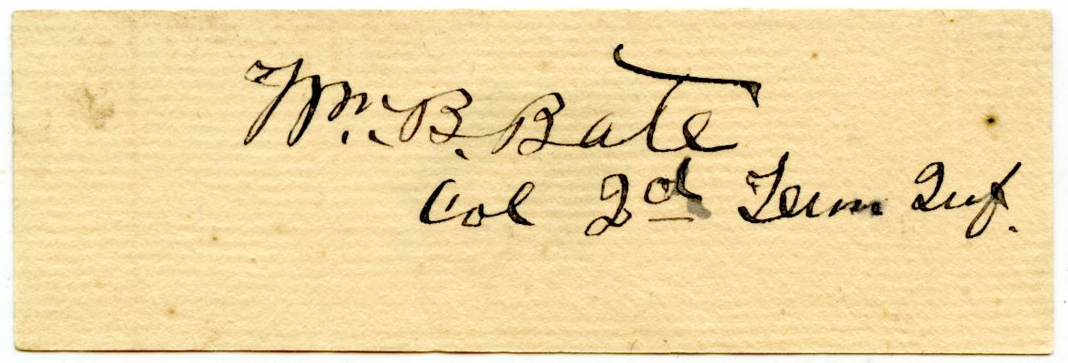 Wm. B. Bate
Col 2d Tenn Inf.